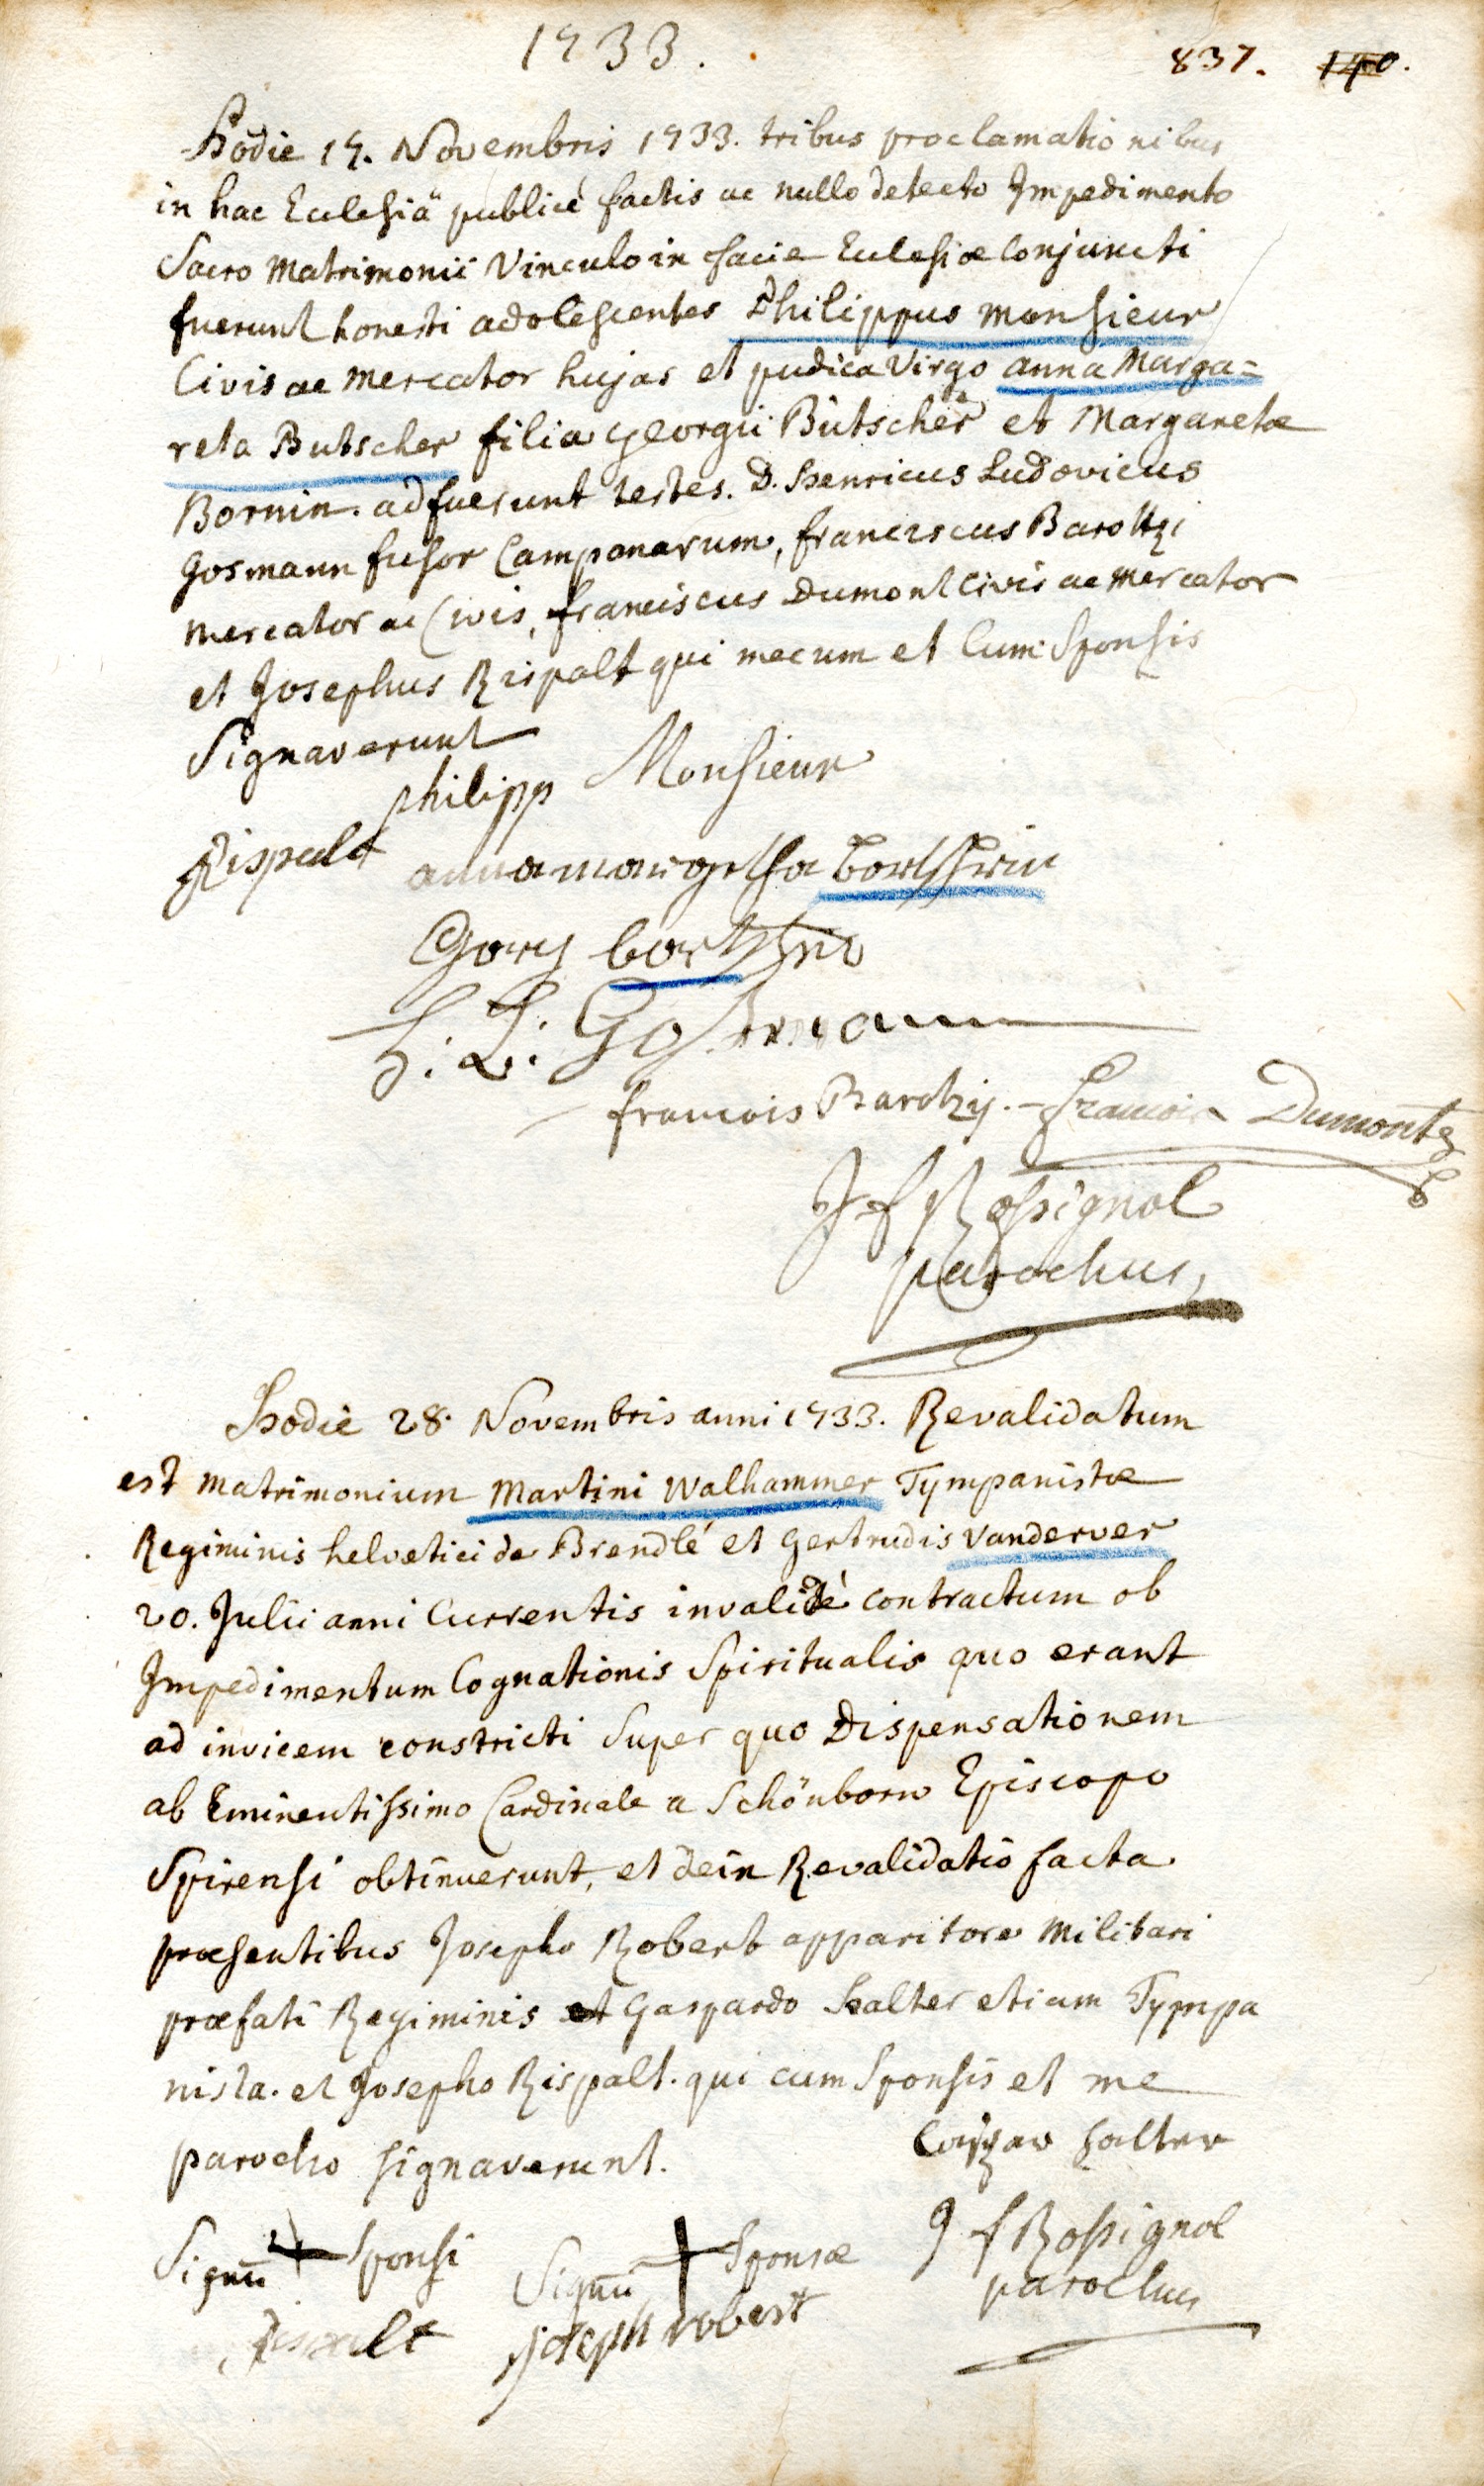 1733.
837. 140.
Hodie 17. Novembris 1733. tribus proclamationibus
in hac Ecclesiâ publicè factis ac nullo detecto Impedimento
Sacro Matrimonii Vinculo in facie Ecclesiæ Conjuncti
fuerunt honesti adolescentes Philippus Monsieur
Civis ac Mercator hujas et pudica Virgo anna Marga=
reta Butscher filia Georgii Bûtscher et Margaretæ
Bornin. adfuerunt testes. D. Henricus Ludovicus
Gosmann fusor Campanarum, franciscus Baroltzi
mercator ac Civis, franciscus Dumont Civis ac Mercator
et Josephus Rispalt qui mecum et Cum Sponsis
Signaverunt
philipp Monsieur
Rispalt
H: L: Goßmann
francois Parolzij. - francois Dumont
J f Rossignol
parochus,
Hodie 28. Novembris anni 1733. Revalidatum
est Matrimonium Martini Walhammer Tympanistæ
Regiminis helvetici de Brendlé et Gertrudis Vanderver
20. Julii anni Currentis invalidè contractum ob
Impedimentum Cognationis Spiritualis quo erant
ad invicem constricti Super quo Dispensationem
ab Eminentissimo Cardinale a Schönborn Episcopo
Spirensi obtinuerunt, et dein Revalidatio facta
præsentibus Josepho Robert apparitore Militari
præfati Regiminis et Gaspardo Halter etiam Tympa
nista. et Josepho Rispalt. qui cum Sponsis et me
parocho signaverunt.
halter
Signũ + Sponsi Signũ + Sponsæ J f Rossignol
parochus
Rispalt joseph robert